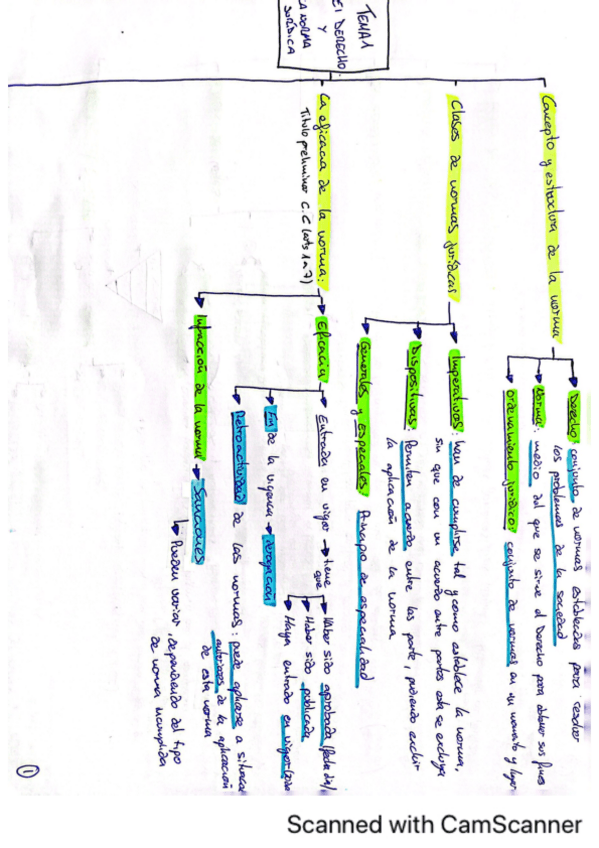 TEMA 1
El DERECHO
Y
LA NORMA
JURÍDICA
Concepto y estructura de la norma
Derecho: conjunto de normas establecidas para resolver
los problemas de la sociedad
Norma: medio del que se sirve el Derecho para obtener sus fines
Ordenamiento jurídico: conjunto de normas en un momento y lugar
Clases de normas jurídicas
Imperativas: han de cumplirse tal y como establece la norma,
sin que con un acuerdo entre partes esta se excluya
Dispositivas: Permiten acuerdo entre las parte, pudiendo excluir
la aplicación de la norma
Generales y especiales: Principio de especialidad
La eficacia de la norma:
Título preliminar C.C (arts 1 a 7)
Eficacia
Entrada en vigor → tiene
que
Haber sido aprobada
Haber sido publicada
Haya entrado en vigor
Fin de la vigencia → derogación
Retroactividad de las normas: puede aplicarse a situac
anteriores de la aplicación
de esta norma
Infracción de la norma → Sanciones
Pueden variar, dependiendo del tipo
de norma incumplida
1
Scanned with CamScanner